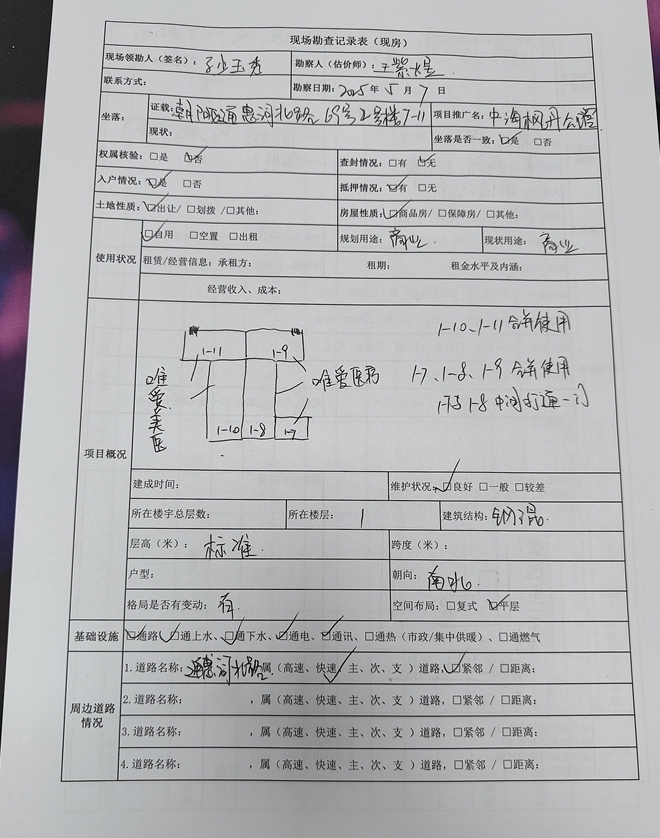 现场勘查记录表（现房）
现场领勘人（签名）： 孙玉秀 勘察人（估价师）： 王紫煜
联系方式： 勘察日期：2025年5月7日
坐落： 证载：朝阳区通惠河北路69号2号楼7-11 项目推广名：中海枫丹公馆
现状： 坐落是否一致：☑是 □否
权属核验：□是 ☑否 查封情况：□有 ☑无
入户情况：☑是 □否 抵押情况：☑有 □无
土地性质：☑出让/ □划拨 / □其他： 房屋性质：☑商品房/ □保障房/ □其他：
使用状况 ☑自用 □空置 □出租 规划用途：商业 现状用途：商业
租赁/经营信息：承租方： 租期： 租金水平及内涵：
经营收入、成本：
项目概况
1-10、1-11合并使用
1-7、1-8、1-9 合并使用
1-7与1-8中间打通一门
1-11 1-9
唯爱美医 唯爱医药
1-10 1-8 1-7
建成时间： 维护状况：☑良好 □一般 □较差
所在楼宇总层数： 所在楼层： 1 建筑结构：钢混
层高（米）： 标准 跨度（米）：
户型： 朝向：南北
格局是否有变动：有 空间布局：□复式 ☑平层
基础设施 ☑通路 ☑通上水、☑通下水、☑通电、☑通讯、□通热（市政/集中供暖）、□通燃气
周边道路情况
1.道路名称：通惠河北路，属（高速、快速✓、主、次、支 ）道路，☑紧邻 / □距离：
2.道路名称： ，属（高速、快速、主、次、支 ）道路，□紧邻 / □距离：
3.道路名称： ，属（高速、快速、主、次、支 ）道路，□紧邻 / □距离：
4.道路名称： ，属（高速、快速、主、次、支 ）道路，□紧邻 / □距离：